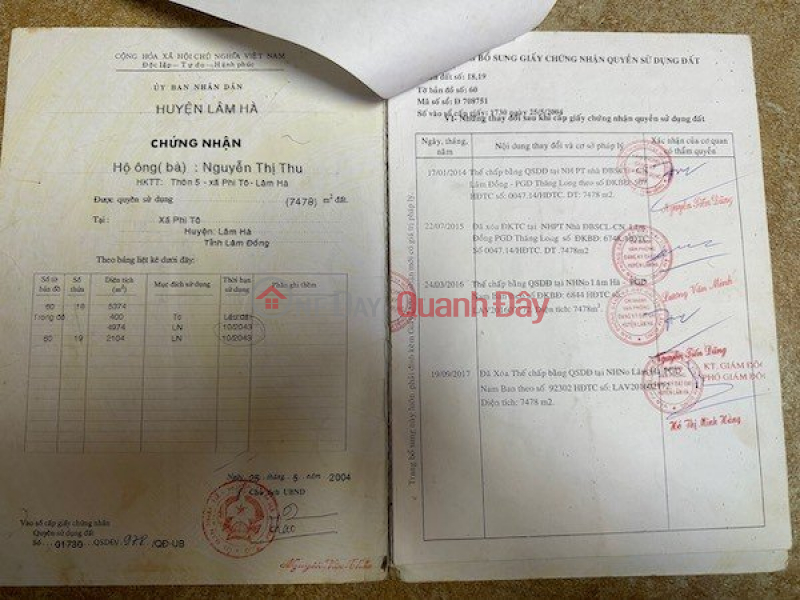 CỘNG HÒA XÃ HỘI CHỦ NGHĨA VIỆT NAM
Độc lập - Tự do - Hạnh phúc
ỦY BAN NHÂN DÂN
HUYỆN LÂM HÀ
CHỨNG NHẬN
Hộ ông( bà) : Nguyễn Thị Thu
HKTT: Thôn 5 - xã Phi Tô - Lâm Hà
Được quyền sử dụng (7478) m² đất.
Tại : Xã Phi Tô
Huyện: Lâm Hà
Tỉnh Lâm Đồng
Theo bảng liệt kê dưới đây:
Số tờ bản đồ Số thửa Diện tích (m²) Mục đích sử dụng Thời hạn sử dụng Phần ghi thêm
60 18 5374
Trong đó 400 Tc Lâu dài
4974 LN 10/2043
60 19 2104 LN 10/2043
Ngày 25 tháng 5 năm 2004
Chủ tịch UBND
Vào sổ cấp giấy chứng nhận
Quyền sử dụng đất
Số 01730 QSDĐ/ 978 /QĐ-UB
BỔ SUNG GIẤY CHỨNG NHẬN QUYỀN SỬ DỤNG ĐẤT
đất số: 18,19
Tờ bản đồ số: 60
Mã số số: Đ 708751
Số vào sổ cấp giấy: 1730 ngày 25/5/2004
VI- Những thay đổi sau khi cấp giấy chứng nhận quyền sử dụng đất
Ngày, tháng, năm Nội dung thay đổi và cơ sở pháp lý Xác nhận của cơ quan có thẩm quyền
17/01/2014 Thế chấp bằng QSDĐ tại NH PT nhà ĐBSCL - CN
Lâm Đồng - PGD Thăng Long theo số ĐKBĐ:
SỐ: 0047.14/HDTC. DT: 7478 m2
Nguyễn Tiến Dũng
22/07/2015 Đã xóa ĐKTC tại NHPT Nhà ĐBSCL-CN. Lâm
Đồng PGD Thăng Long số ĐKBĐ: 6748
Số 0047.14/HDTC. DT .7478m2
Lương Văn Minh
24/03/2016 Thế chấp bằng QSDĐ tại NHNo Lâm Hà PGD
số ĐKBĐ: 6844 HĐTC số:
tích: 7478m²
Nguyễn Tiến Dũng
KT. GIÁM ĐỐC
PHÓ GIÁM ĐỐC
19/09/2017 Đã Xóa Thế chấp bằng QSDĐ tại NHNo Lâm Hà PGD
Nam Ban theo số 92302 HĐTC số:
Diện tích: 7478 m2.
Hồ Thị Minh Hằng
Trang bổ sung này luôn phải đính kèm
mới có giá trị pháp lý
Quanh Đây